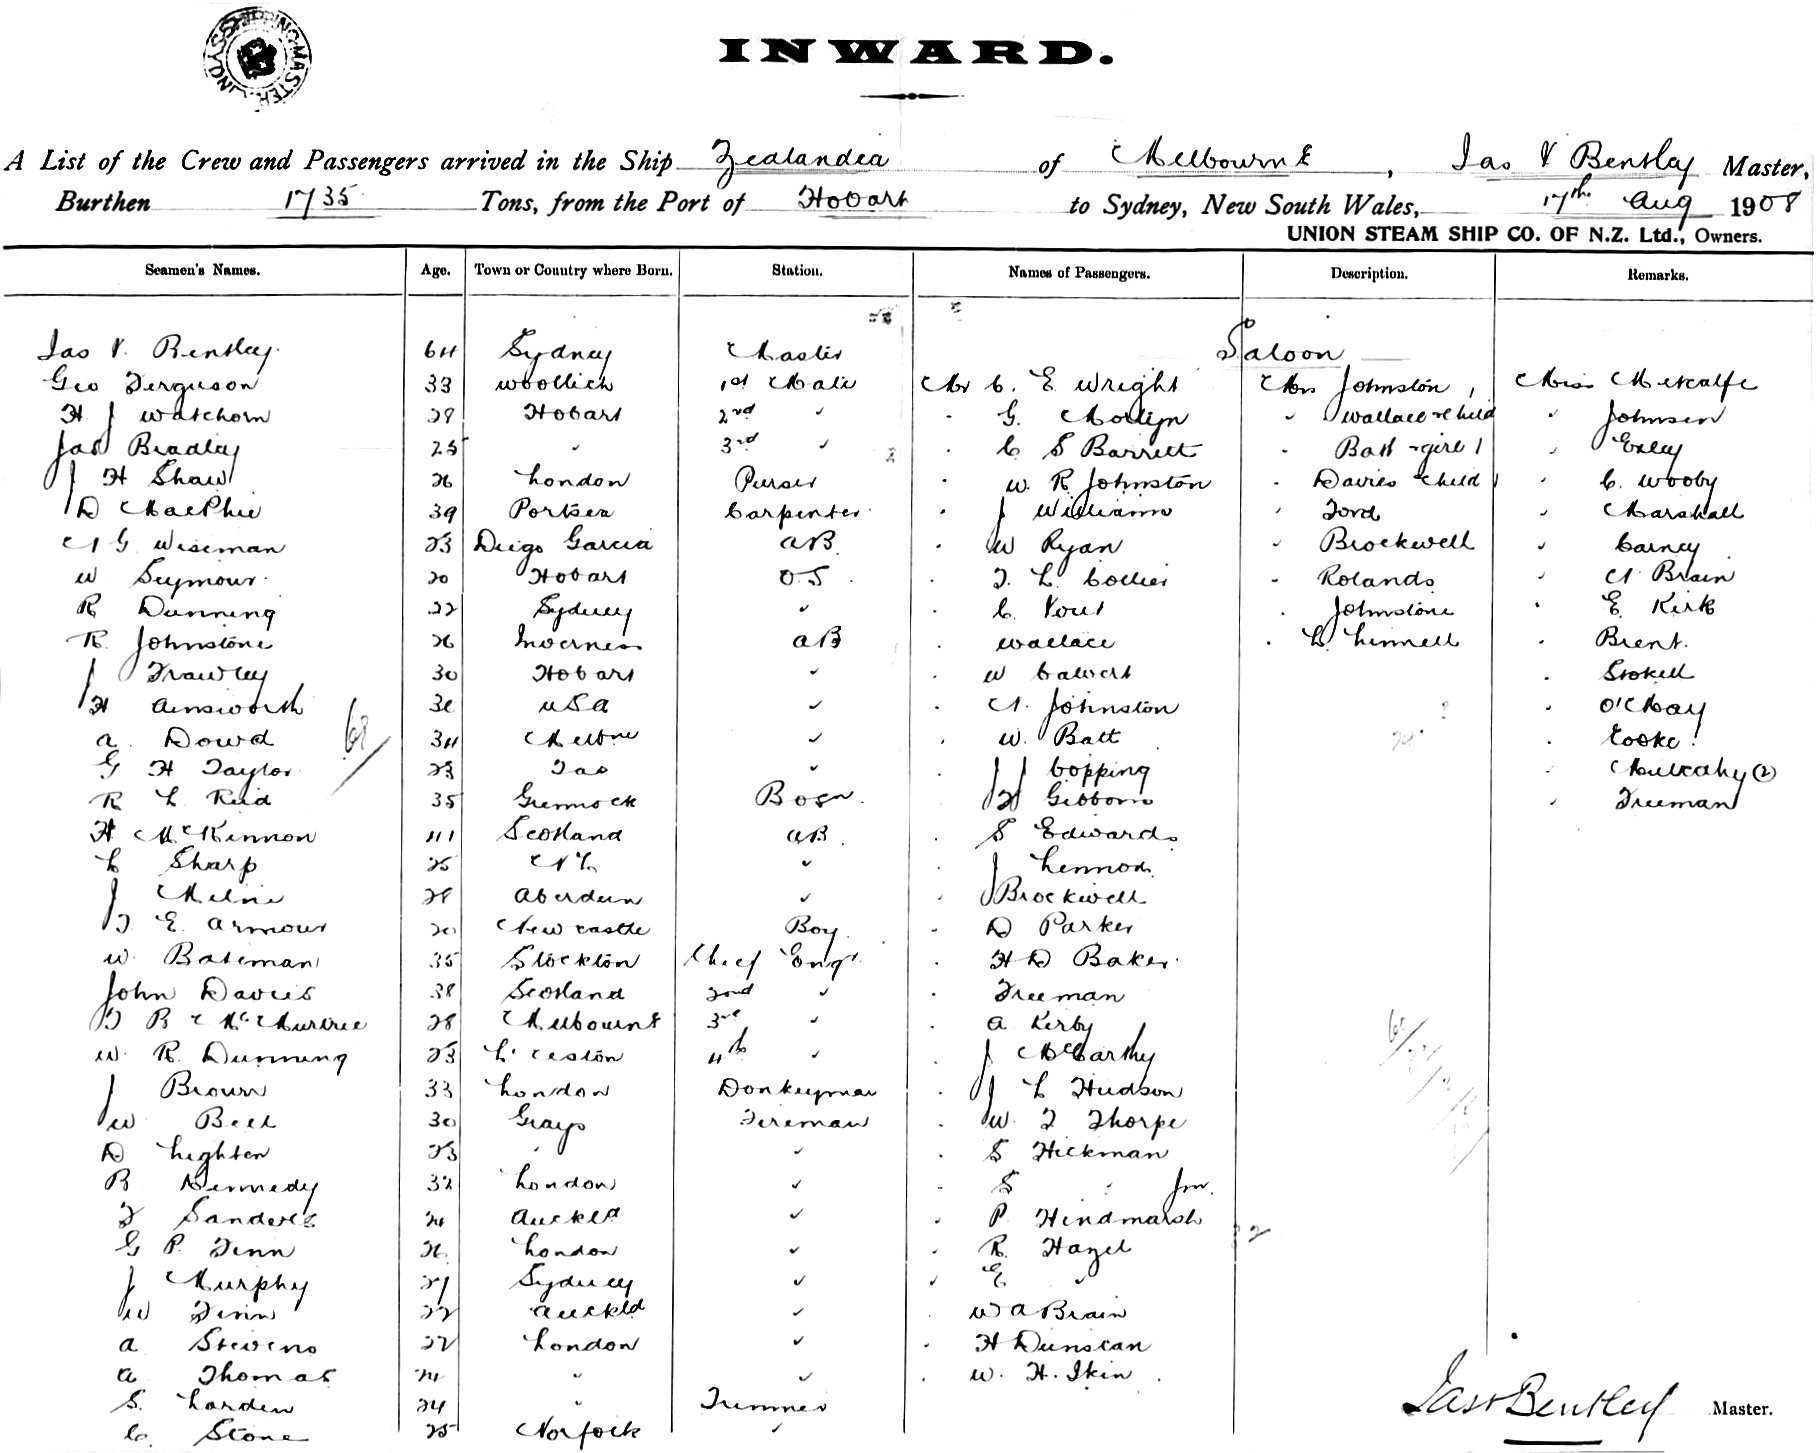 SHIPPING MASTER SYDNEY
INWARD.
A List of the Crew and Passengers arrived in the Ship Zealandia of Melbourne, Jas V Bentley Master,
Burthen 1735 Tons, from the Port of Hobart to Sydney, New South Wales, 17th Aug 1908
UNION STEAM SHIP CO. OF N.Z. Ltd., Owners.
Seamen's Names. Age. Town or Country where Born. Station. Names of Passengers. Description. Remarks.
Saloon
Jas V. Bentley 64 Sydney Master
Geo Ferguson 33 Woolwich 1st Mate Mr C. E Wright Mrs Johnston, Miss Metcalfe
H J Watchorn 28 Hobart 2nd " " G. " Wallace & Child " Johnsen
Jas Bradley 25 " 3rd " " C S Barrett " Batt & girl 1 " Exley
J H Shaw 26 London Purser " W R Johnston " Davies & Child 1 " C. Wooby
D MacPhie 39 Portsea Carpenter " J Williams " Ford " Marshall
N G Wiseman 23 Diego Garcia AB. " W Ryan " Brockwell " Carney
W Seymour 20 Hobart O.S. " T. L. Collier " Rolands " N Brain
R Dunning 22 Sydney " " C. Vout " Johnstone " E Kirk
R. Johnstone 26 Inverness AB " Wallace " L. Linnell " Brent.
J Frawley 30 Hobart " " W Calvert " Stokell
H Ainsworth 32 USA " " N. Johnston " O'May
A. Dowd 34 Melbne " " W. Batt " Cooke.
G H Taylor 23 Tas " J J Copping " Mulcahy (2)
R L Reid 35 Greenock Bosn. H Gibbons " Freeman
H McKinnon 41 Scotland AB " S Edwards
L Sharp 25 NZ " " J Lennox
J Milne 28 Aberdeen " Brockwell
T. E Armour 20 Newcastle Boy. " D Parker
W. Bateman 35 Stockton Chief Engr " H D Baker
John Davies 38 Scotland 2nd " " Freeman
T B McMurtrie 28 Melbourne 3rd " " A Kerby
W. R. Dunning 23 L'ceston 4th " " J McCarthy
J Brown 33 London Donkeyman " J L Hudson
W Bell 30 Grays Fireman " W. T Thorpe
D Lighten 23 " " " S Hickman
B Kennedy 32 London " " S " Jnr.
F Sanders 24 Auckld " " P Hindmarsh
G P. Finn 26 London " " R. Hazel
J Murphy 27 Sydney " " E "
W Finn 22 Auckld " " W A Brain
A Stevens 22 London " " H Dunscan
A Thomas 24 " " " W. H. Ikin
S. Larden 24 " Trimmer
C. Stone 25 Norfolk "
Jas V Bentley Master.